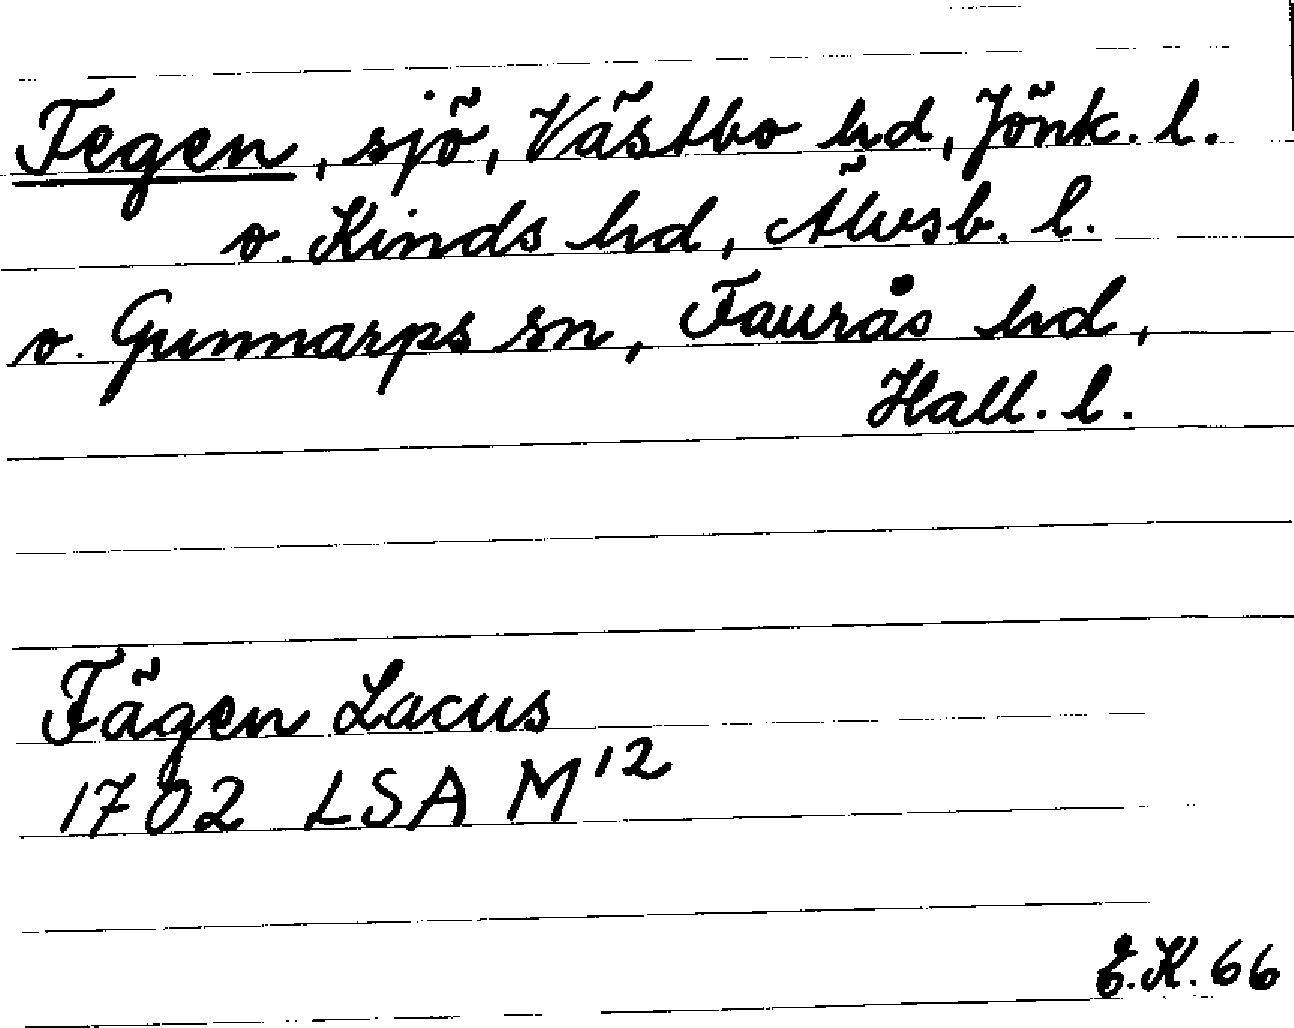 Fegen, sjö, Västbo hd, Jönk. l.
o. Kinds hd, Älvsb. l.
o. Gunnarps sn, Faurås hd,
Hall. l.
Fägen Lacus
1702 LSA M12
E.K. 66